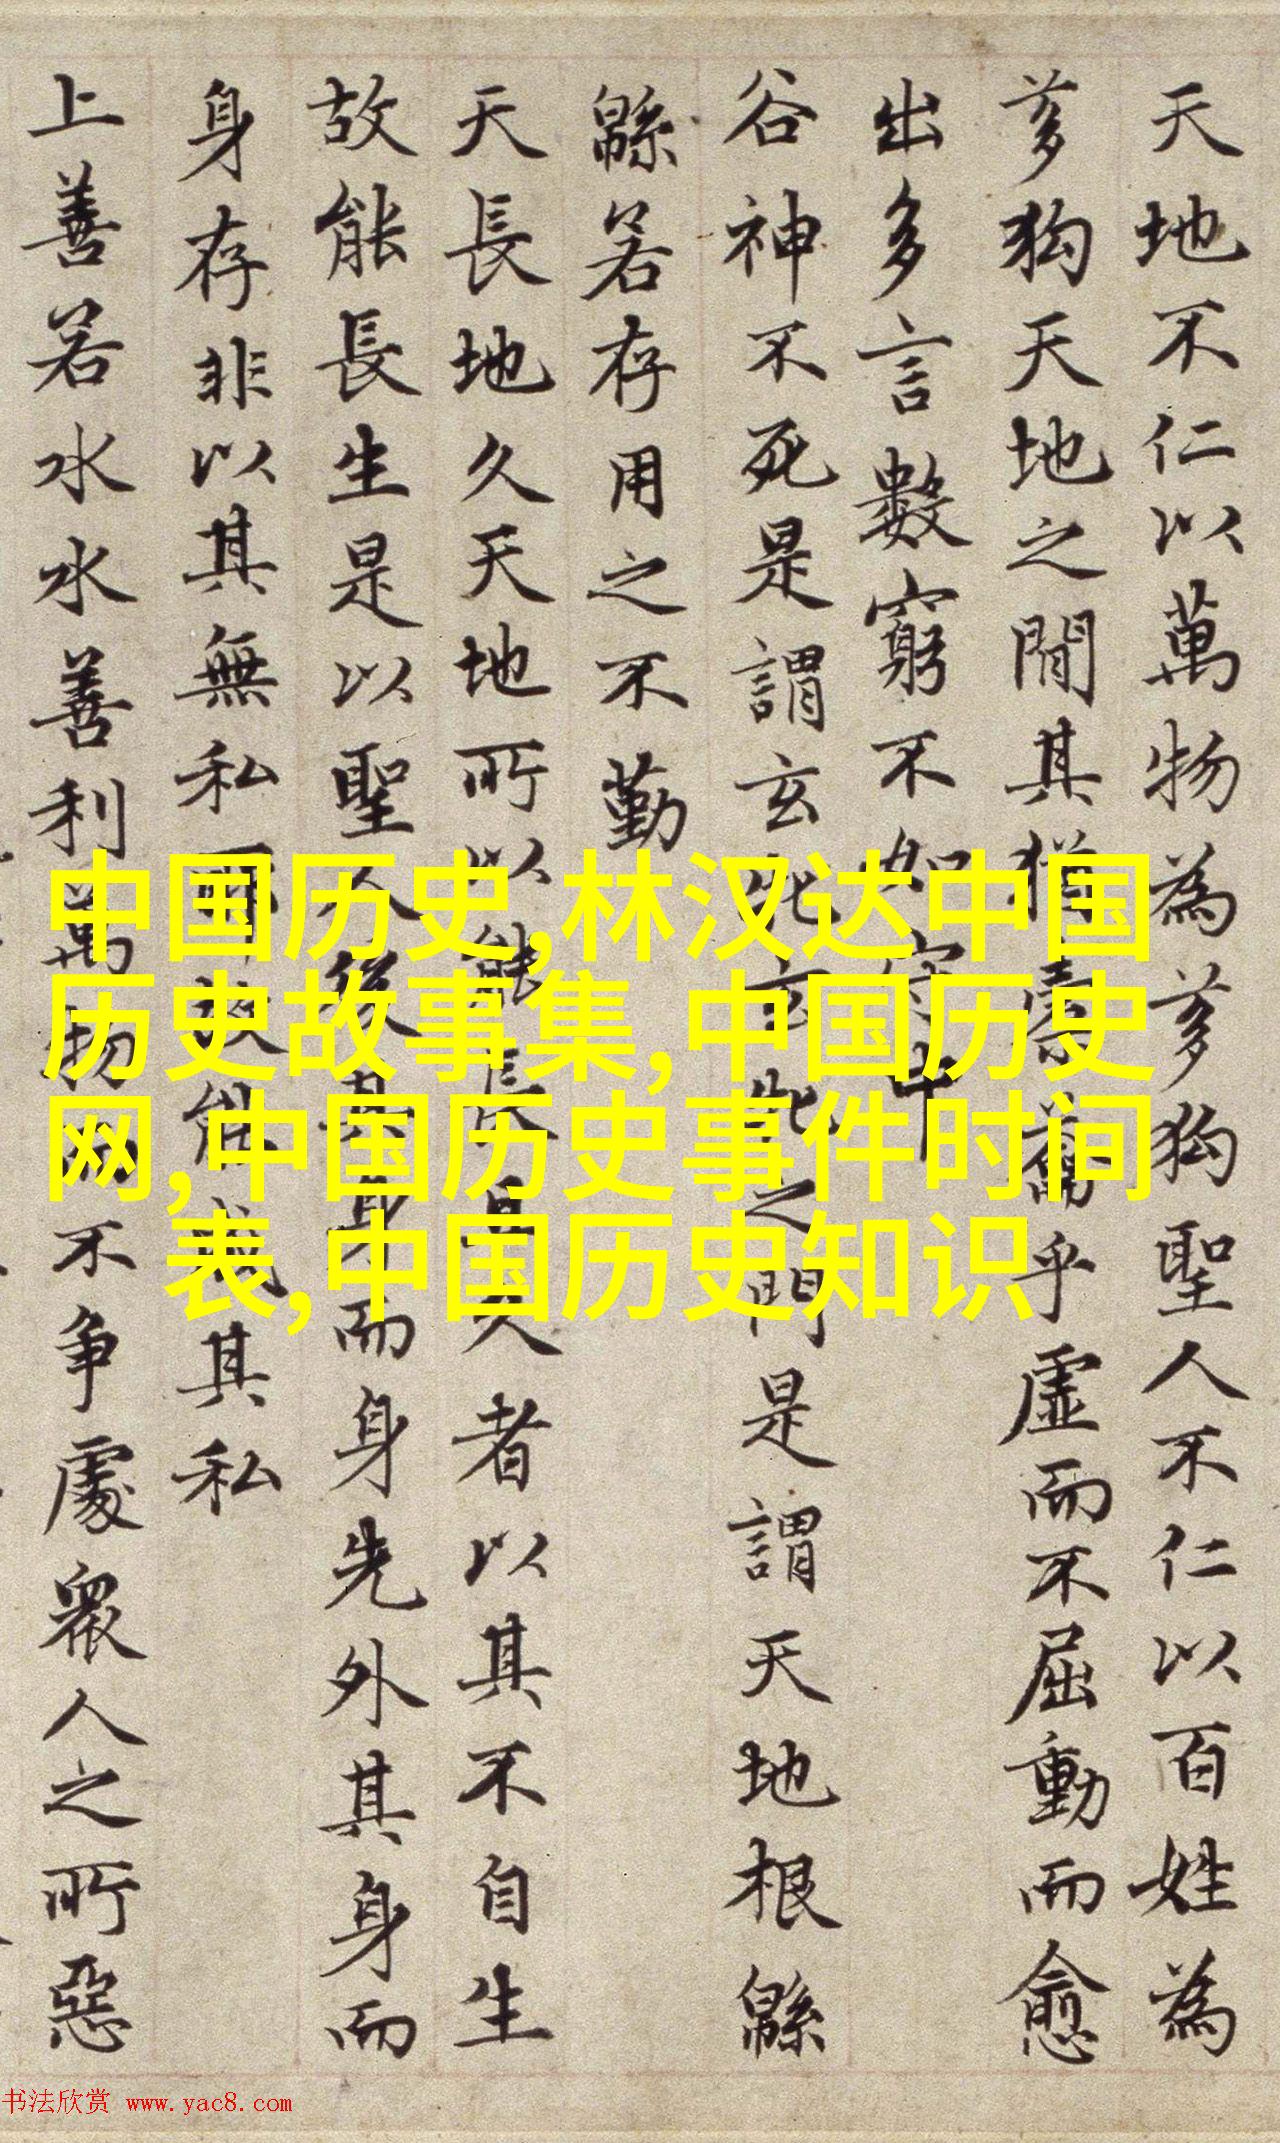 天地不仁以萬物為芻狗聖人不仁以百姓為
芻狗天地之間其猶橐籥乎虛而不屈動而愈
出多言數窮不如守中
谷神不死是謂玄牝玄牝之門是謂天地根緜
緜若存用之不勤
天長地久天地所以能長且久者以其不自生
故能長生是以聖人後其身而身先外其身而
身存非以其無私耶故能成其私
上善若水水善利萬物不爭處眾人之所惡
中国历史,林汉达中国
历史故事集,中国历史
网,中国历史事件时间
表,中国历史知识
书法欣赏 www.yac8.com